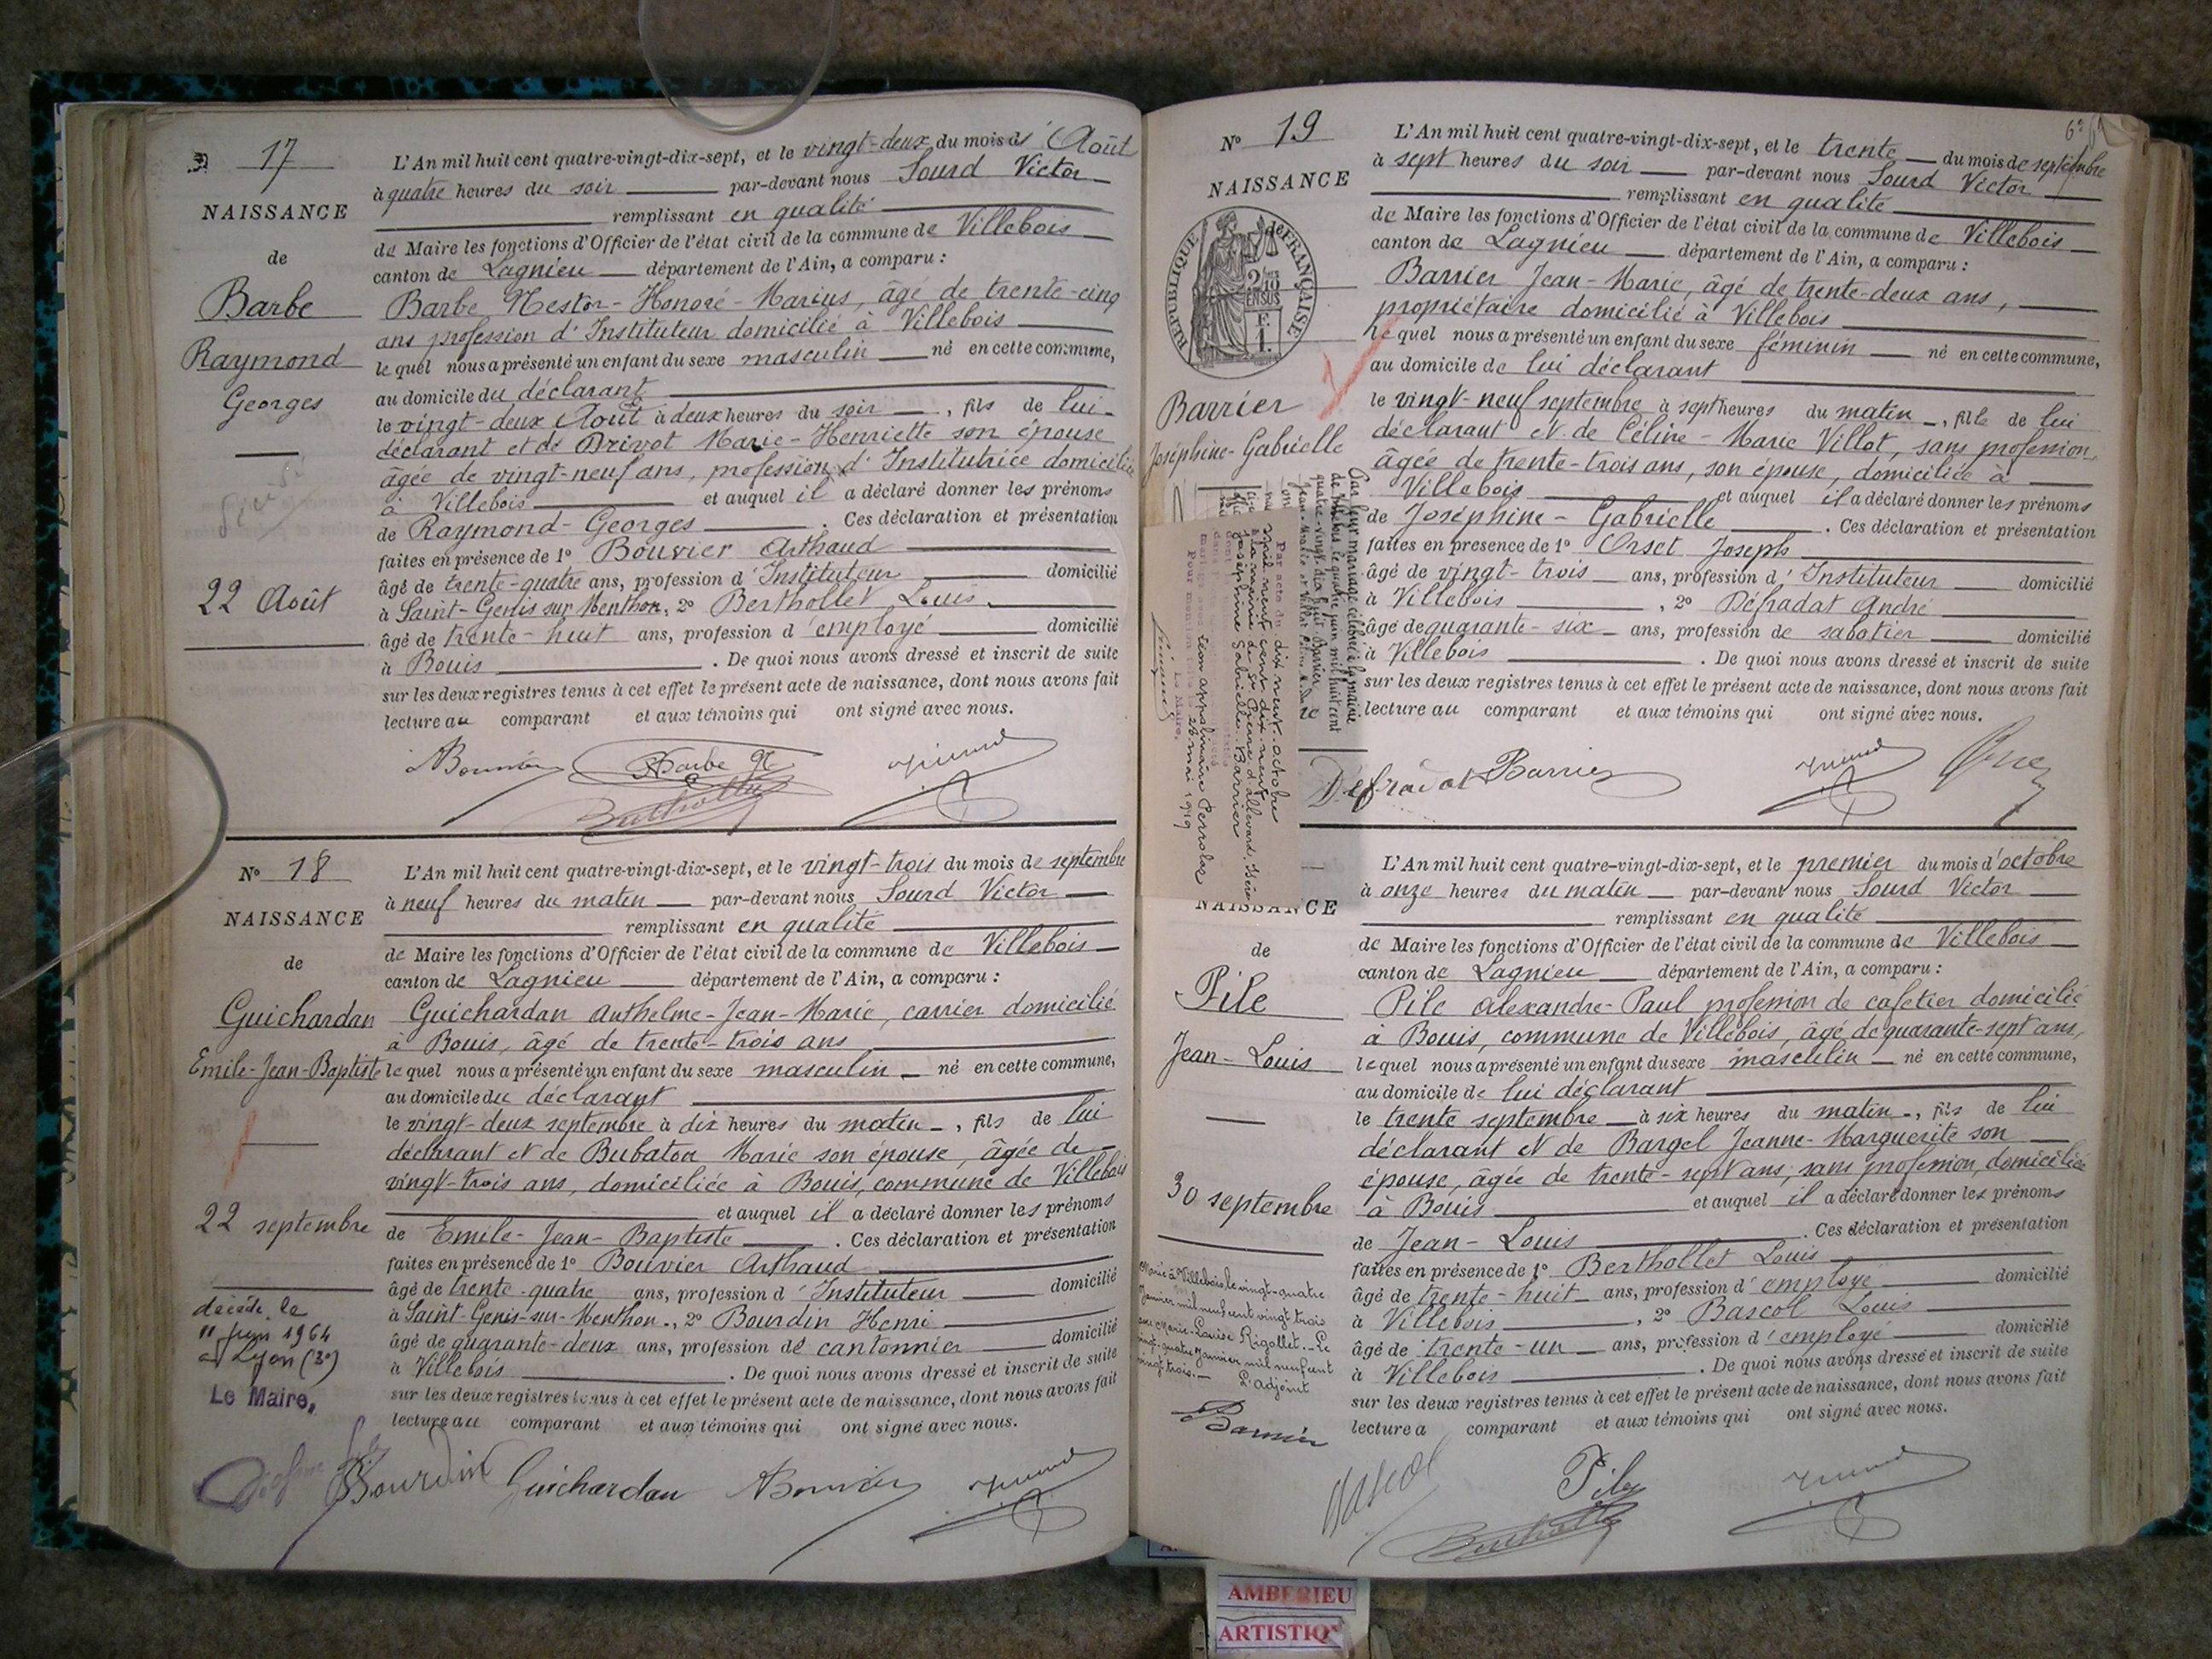 N° 17
NAISSANCE
de
Barbe
Raymond
Georges
22 Août
L'An mil huit cent quatre-vingt-dix-sept, et le vingt-deux du mois d'Août
à quatre heures du soir par-devant nous Sourd Victor
remplissant en qualité
de Maire les fonctions d'Officier de l'état civil de la commune de Villebois
canton de Lagnieu département de l'Ain, a comparu :
Barbe Nestor-Honoré-Marius, âgé de trente-cinq
ans profession d'Instituteur domicilié à Villebois
lequel nous a présenté un enfant du sexe masculin né en cette commune,
au domicile du déclarant
le vingt-deux Août à deux heures du soir, fils de lui
déclarant et de Drivot Marie-Henriette son épouse
âgée de vingt-neuf ans, profession d'Institutrice domiciliée
à Villebois et auquel il a déclaré donner les prénoms
de Raymond-Georges. Ces déclaration et présentation
faites en présence de 1° Bouvier Arthaud
âgé de trente-quatre ans, profession d'Instituteur domicilié
à Saint-Genis sur Menthon, 2° Berthollet Louis
âgé de trente-huit ans, profession d'employé domicilié
à Bouis. De quoi nous avons dressé et inscrit de suite
sur les deux registres tenus à cet effet le présent acte de naissance, dont nous avons fait
lecture au comparant et aux témoins qui ont signé avec nous.
N° 18
NAISSANCE
de
Guichardan
Emile-Jean-Baptiste
22 septembre
décédé le
11 juin 1964
à Lyon (3e)
Le Maire,
L'An mil huit cent quatre-vingt-dix-sept, et le vingt-trois du mois de septembre
à neuf heures du matin par-devant nous Sourd Victor
remplissant en qualité
de Maire les fonctions d'Officier de l'état civil de la commune de Villebois
canton de Lagnieu département de l'Ain, a comparu :
Guichardan Anthelme-Jean-Marie, carrier domicilié
à Bouis, âgé de trente-trois ans
lequel nous a présenté un enfant du sexe masculin né en cette commune,
au domicile du déclarant
le vingt-deux septembre à dix heures du matin, fils de lui
déclarant et de Bubaton Marie son épouse, âgée de
vingt-trois ans, domiciliée à Bouis, commune de Villebois
et auquel il a déclaré donner les prénoms
de Emile-Jean-Baptiste. Ces déclaration et présentation
faites en présence de 1° Bouvier Arthaud
âgé de trente-quatre ans, profession d'Instituteur domicilié
à Saint-Genis-sur-Menthon, 2° Bourdin Henri
âgé de quarante-deux ans, profession de cantonnier domicilié
à Villebois. De quoi nous avons dressé et inscrit de suite
sur les deux registres tenus à cet effet le présent acte de naissance, dont nous avons fait
lecture au comparant et aux témoins qui ont signé avec nous.
Bourdin Guichardan
N° 19
NAISSANCE
REPUBLIQUE FRANÇAISE
Barrier
Joséphine-Gabrielle
L'An mil huit cent quatre-vingt-dix-sept, et le trente du mois de septembre
à sept heures du soir par-devant nous Sourd Victor
remplissant en qualité
de Maire les fonctions d'Officier de l'état civil de la commune de Villebois
canton de Lagnieu département de l'Ain, a comparu :
Barrier Jean-Marie, âgé de trente-deux ans,
propriétaire domicilié à Villebois
lequel nous a présenté un enfant du sexe féminin né en cette commune,
au domicile de lui déclarant
le vingt-neuf septembre à sept heures du matin, fille de lui
déclarant et de Céline-Marie Villot, sans profession,
âgée de trente-trois ans, son épouse, domiciliée à
Villebois et auquel il a déclaré donner les prénoms
de Joséphine-Gabrielle. Ces déclaration et présentation
faites en présence de 1° Orset Joseph
âgé de vingt-trois ans, profession d'Instituteur domicilié
à Villebois, 2° Défradat André
âgé de quarante-six ans, profession de sabotier domicilié
à Villebois. De quoi nous avons dressé et inscrit de suite
sur les deux registres tenus à cet effet le présent acte de naissance, dont nous avons fait
lecture au comparant et aux témoins qui ont signé avec nous.
Defradat Barrier
NAISSANCE
de
Pile
Jean-Louis
30 septembre
Marié à Villebois le vingt-quatre
Janvier mil neuf cent vingt trois
avec Marie-Louise Rigollet. Le
vingt-quatre Janvier mil neuf cent
vingt trois.
L'adjoint
Barrier
L'An mil huit cent quatre-vingt-dix-sept, et le premier du mois d'octobre
à onze heures du matin par-devant nous Sourd Victor
remplissant en qualité
de Maire les fonctions d'Officier de l'état civil de la commune de Villebois
canton de Lagnieu département de l'Ain, a comparu :
Pile Alexandre-Paul profession de cafetier domicilié
à Bouis, commune de Villebois, âgé de quarante-sept ans,
lequel nous a présenté un enfant du sexe masculin né en cette commune,
au domicile de lui déclarant
le trente septembre à six heures du matin, fils de lui
déclarant et de Bargel Jeanne-Marguerite son
épouse, âgée de trente-sept ans, sans profession, domiciliée
à Bouis et auquel il a déclaré donner les prénoms
de Jean-Louis. Ces déclaration et présentation
faites en présence de 1° Berthollet Louis
âgé de trente-huit ans, profession d'employé domicilié
à Villebois, 2° Bascol Louis
âgé de trente-un ans, profession d'employé domicilié
à Villebois. De quoi nous avons dressé et inscrit de suite
sur les deux registres tenus à cet effet le présent acte de naissance, dont nous avons fait
lecture a comparant et aux témoins qui ont signé avec nous.
Bascol Pile
AMBERIEU
ARTISTIQ